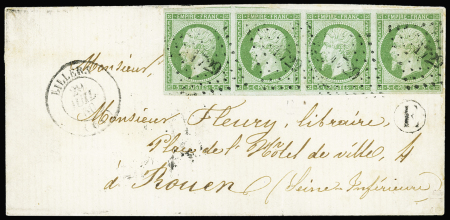 EMPIRE FRANC. EMPIRE FRANC. EMPIRE FRANC. EMPIRE FRANC.
LILLERS
Monsieur
Monsieur Fleury, libraire,
E
Place de l'Hôtel de ville, 4
à Rouen (Seine Inférieure)